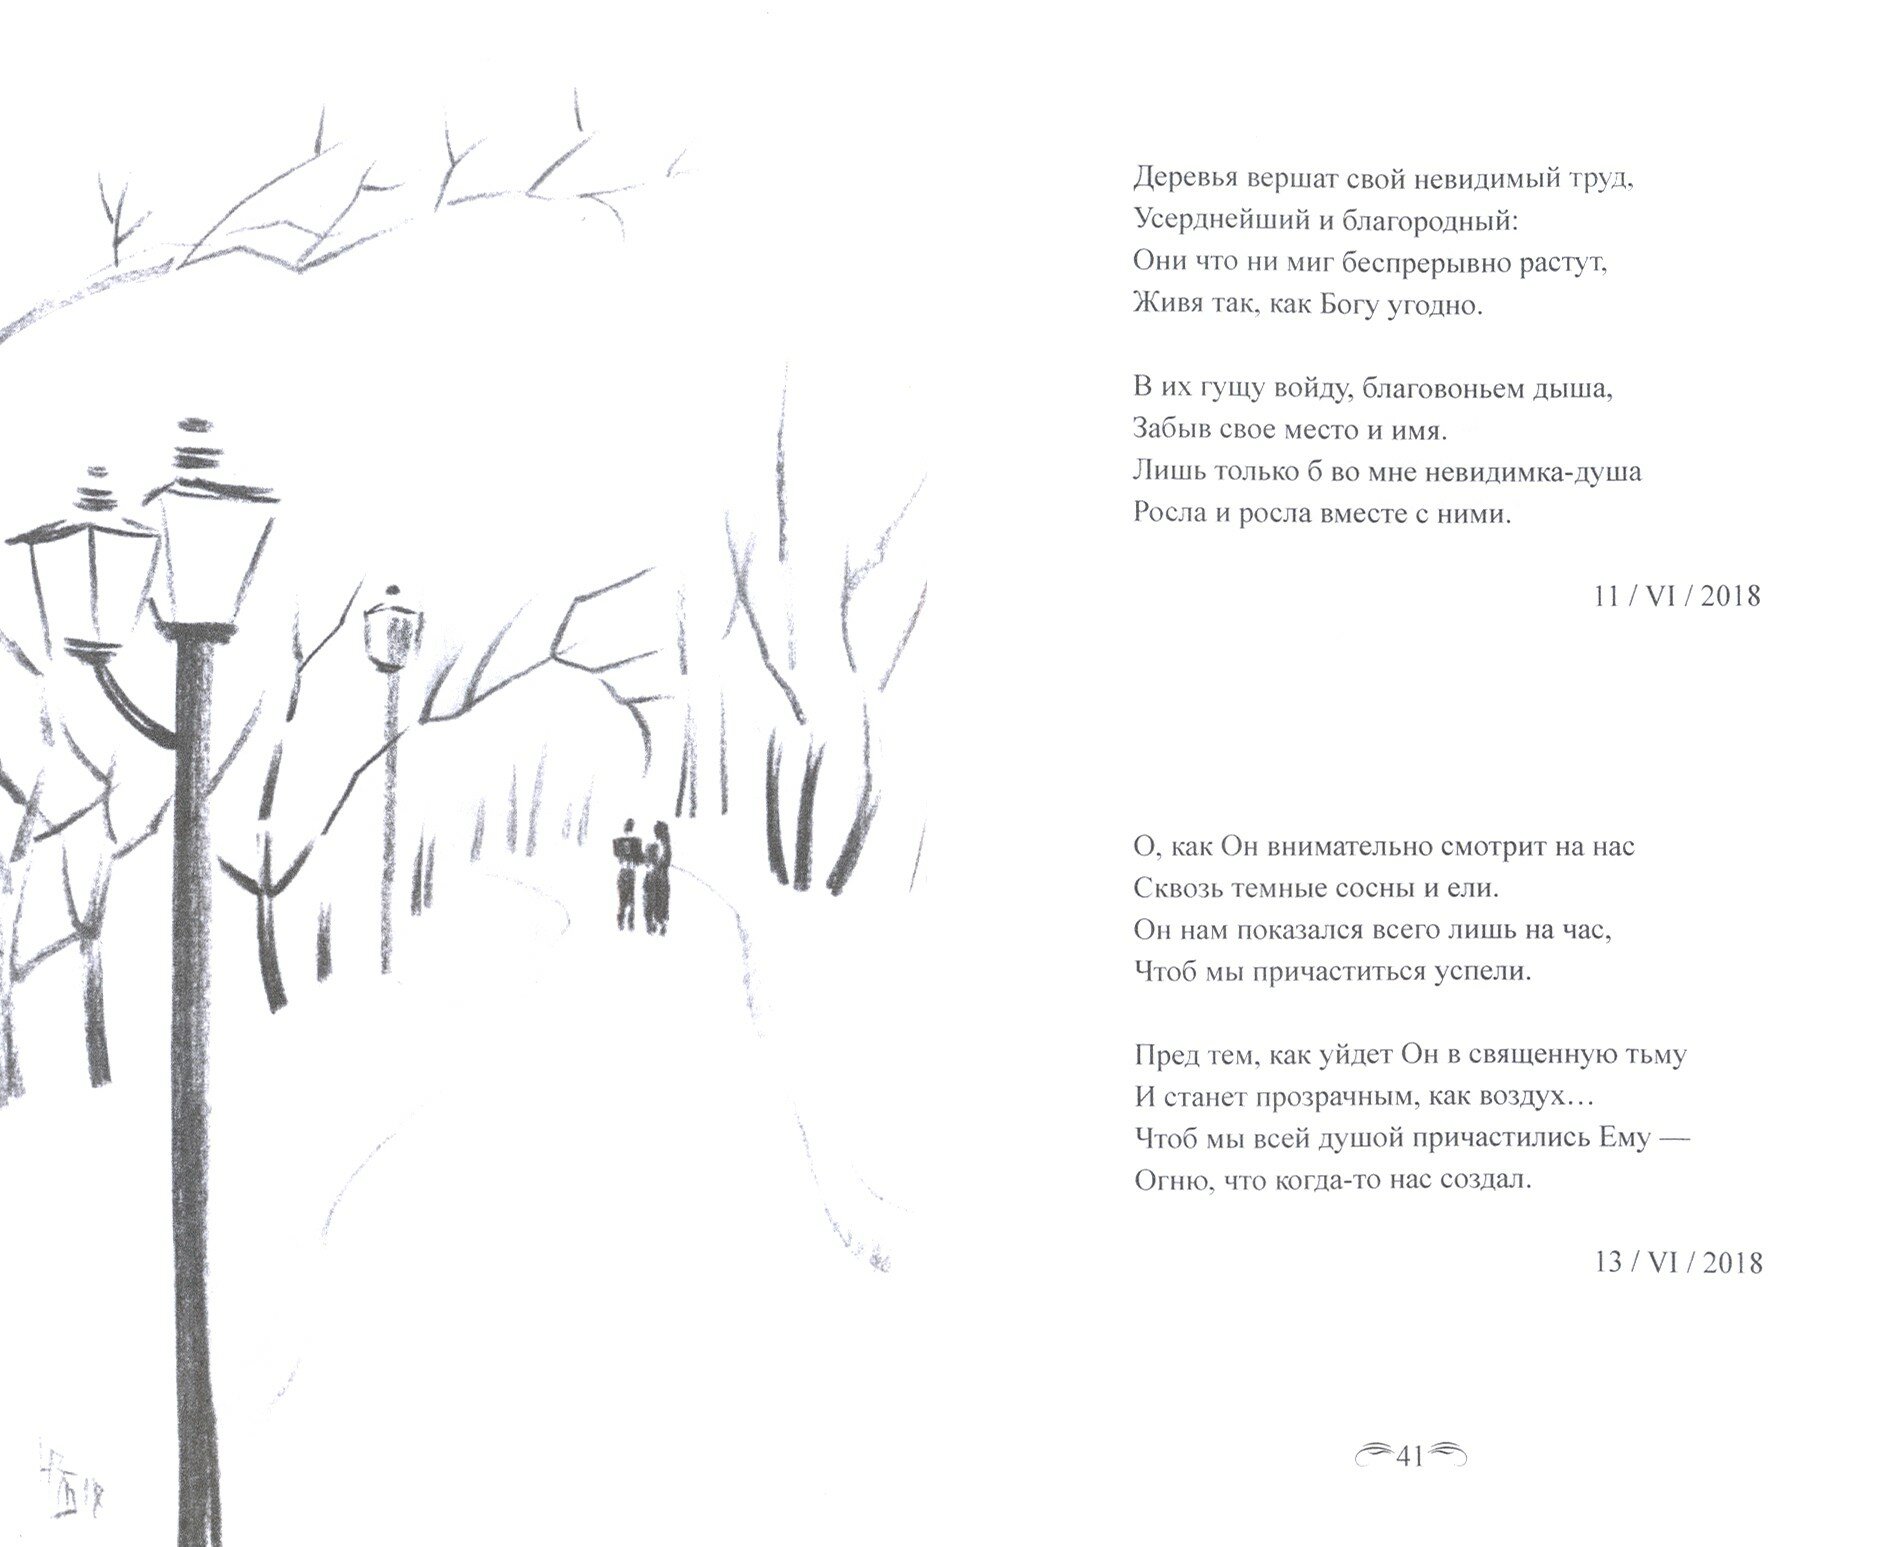 Деревья вершат свой невидимый труд,
Усерднейший и благородный:
Они что ни миг беспрерывно растут,
Живя так, как Богу угодно.
В их гущу войду, благовоньем дыша,
Забыв свое место и имя.
Лишь только б во мне невидимка-душа
Росла и росла вместе с ними.
11 / VI / 2018
О, как Он внимательно смотрит на нас
Сквозь темные сосны и ели.
Он нам показался всего лишь на час,
Чтоб мы причаститься успели.
Пред тем, как уйдет Он в священную тьму
И станет прозрачным, как воздух…
Чтоб мы всей душой причастились Ему —
Огню, что когда-то нас создал.
13 / VI / 2018
41